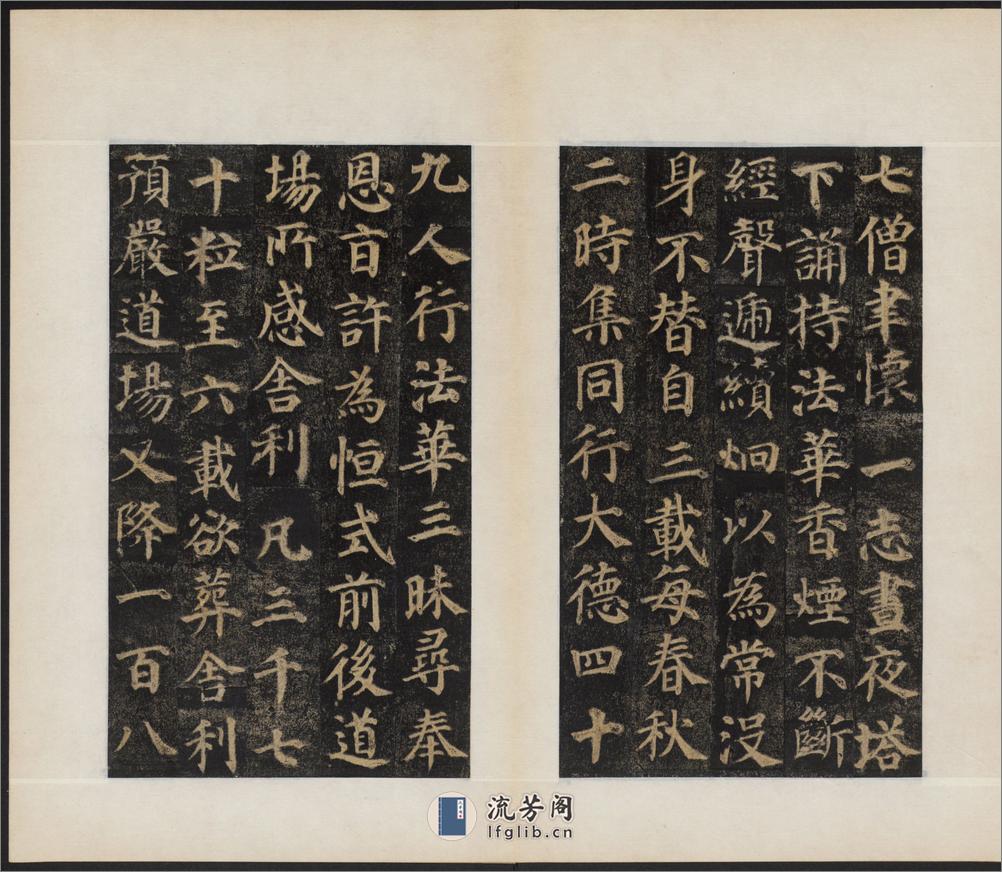 七僧聿懷一志晝夜塔
下誦持法華香煙不斷
經聲遞續炯以為常沒
身不替自三載每春秋
二時集同行大德四十
九人行法華三昧尋奉
恩旨許為恒式前後道
場所感舍利凡三千七
十粒至六載欲葬舍利
預嚴道場又降一百八
流芳阁
lfglib.cn